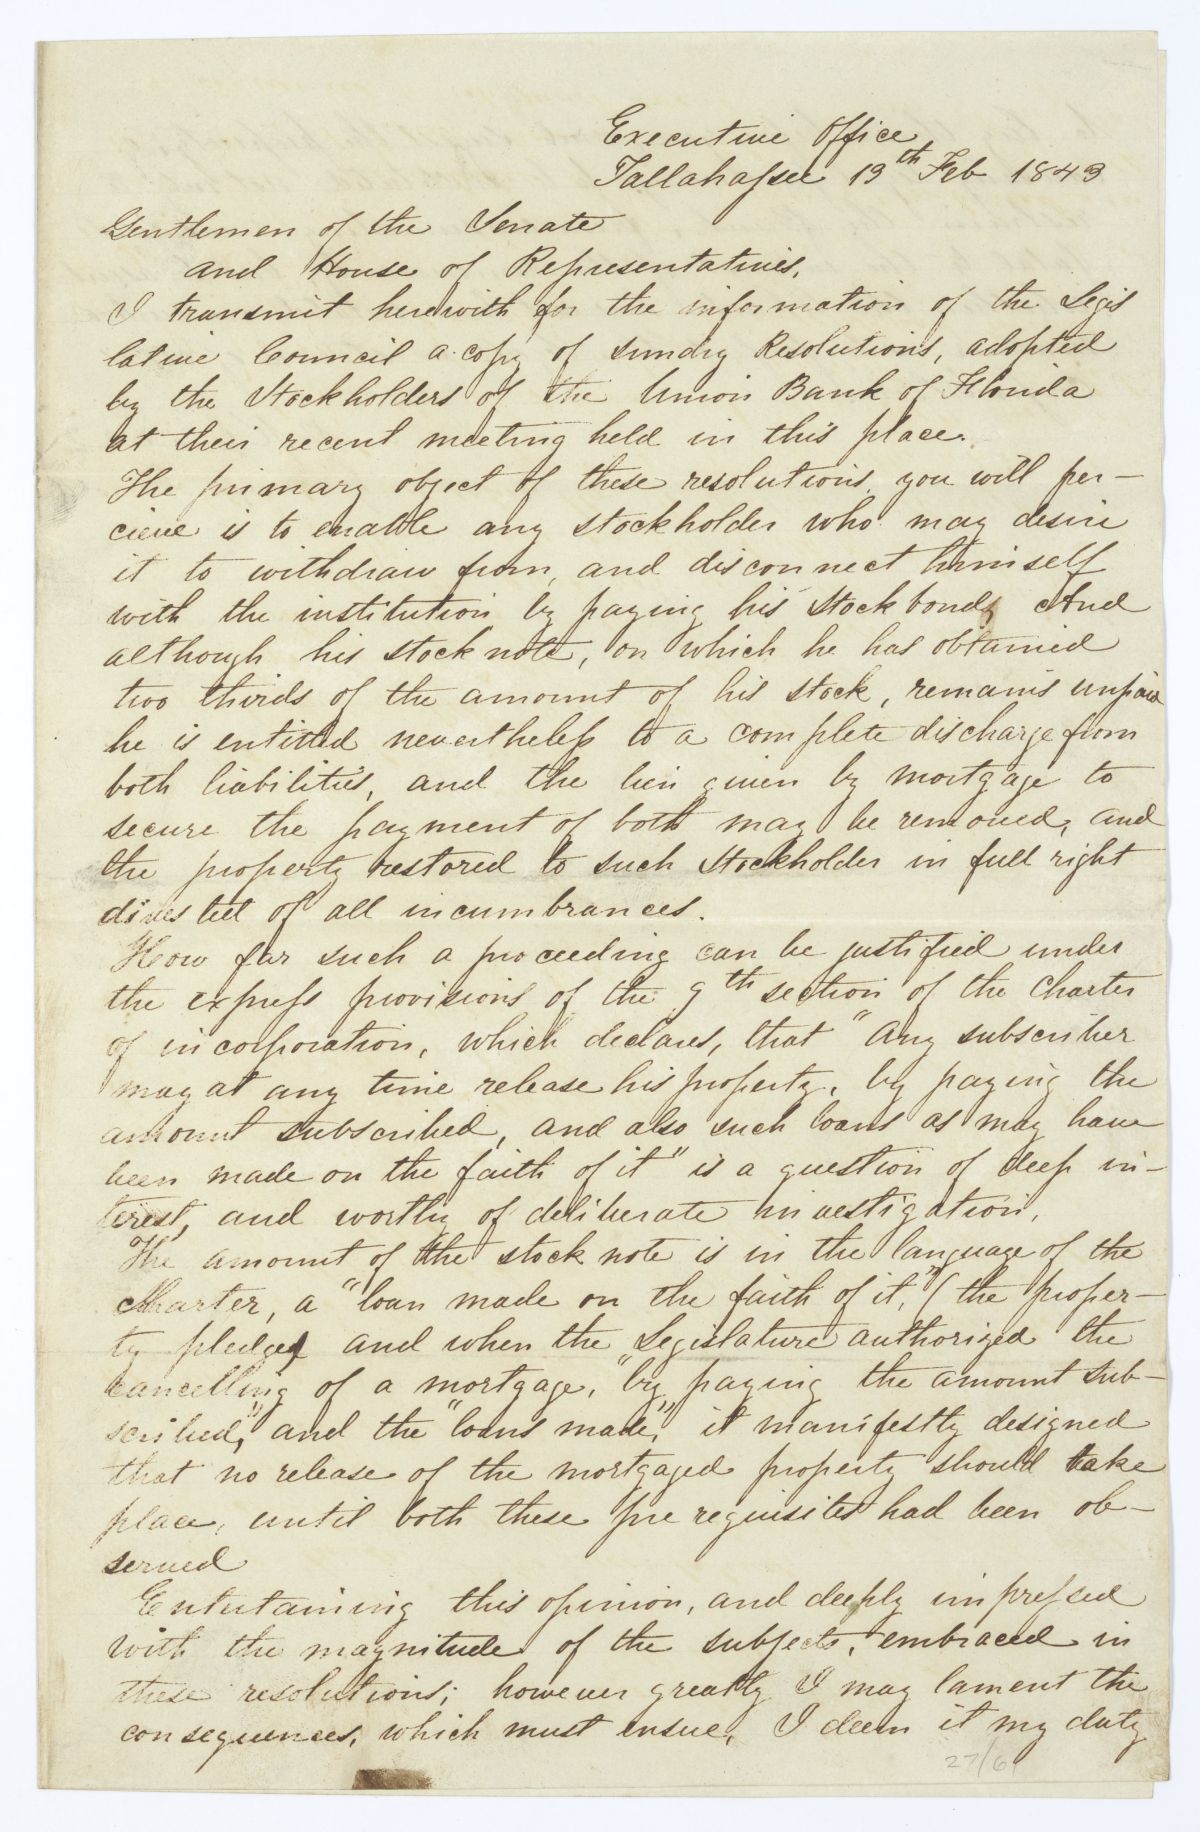 Executive Office
Tallahassee 13th Feb 1843
Gentlemen of the Senate
and House of Representatives,
I transmit herewith for the information of the Legis
lative Council a copy of sundry Resolutions, adopted
by the Stockholders of the Union Bank of Florida
at their recent meeting held in this place.
The primary object of these resolutions, you will per-
cieve is to enable any stockholder who may desire
it to withdraw from, and disconnect himself
with the institution by paying his stock bonds And
although his stock note, on which he has obtained
two thirds of the amount of his stock, remains unpaid
he is entitled nevertheless to a complete discharge from
both liabilities, and the lien given by mortgage to
secure the payment of both may be removed, and
the property restored to such Stockholder in full right
divested of all incumbrances.
How far such a proceeding can be justified under
the express provisions of the 9th section of the Charter
of incorporation, which declares, that "Any subscriber
may at any time release his property, by paying the
amount subscribed, and also such loans as may have
been made on the faith of it" is a question of deep in-
terest, and worthy of deliberate investigation.
The amount of the stock note is in the language of the
Charter, a "loan made on the faith of it," (the proper-
ty pledged and when the Legislature authorized the
cancelling of a mortgage, "by paying the amount sub-
scribed," and the "loans made," it manifestly designed
that no release of the mortgaged property should take
place, until both these pre requisites had been ob-
served
Entertaining this opinion, and deeply impressed
with the magnitude of the subjects, embraced in
these resolutions; however greatly I may lament the
consequences, which must ensue, I deem it my duty
27/6